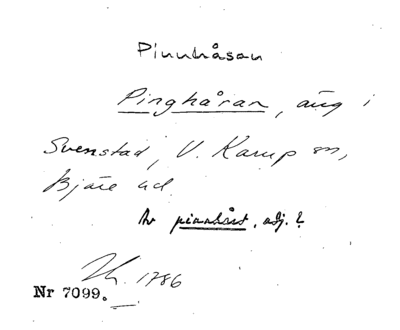 Pinnhåsan
Pinghåran, äng i
Svenstad, V. Karup sn,
Bjäre hd
Av pinnhåst, adj.?
1786
Nr 7099.